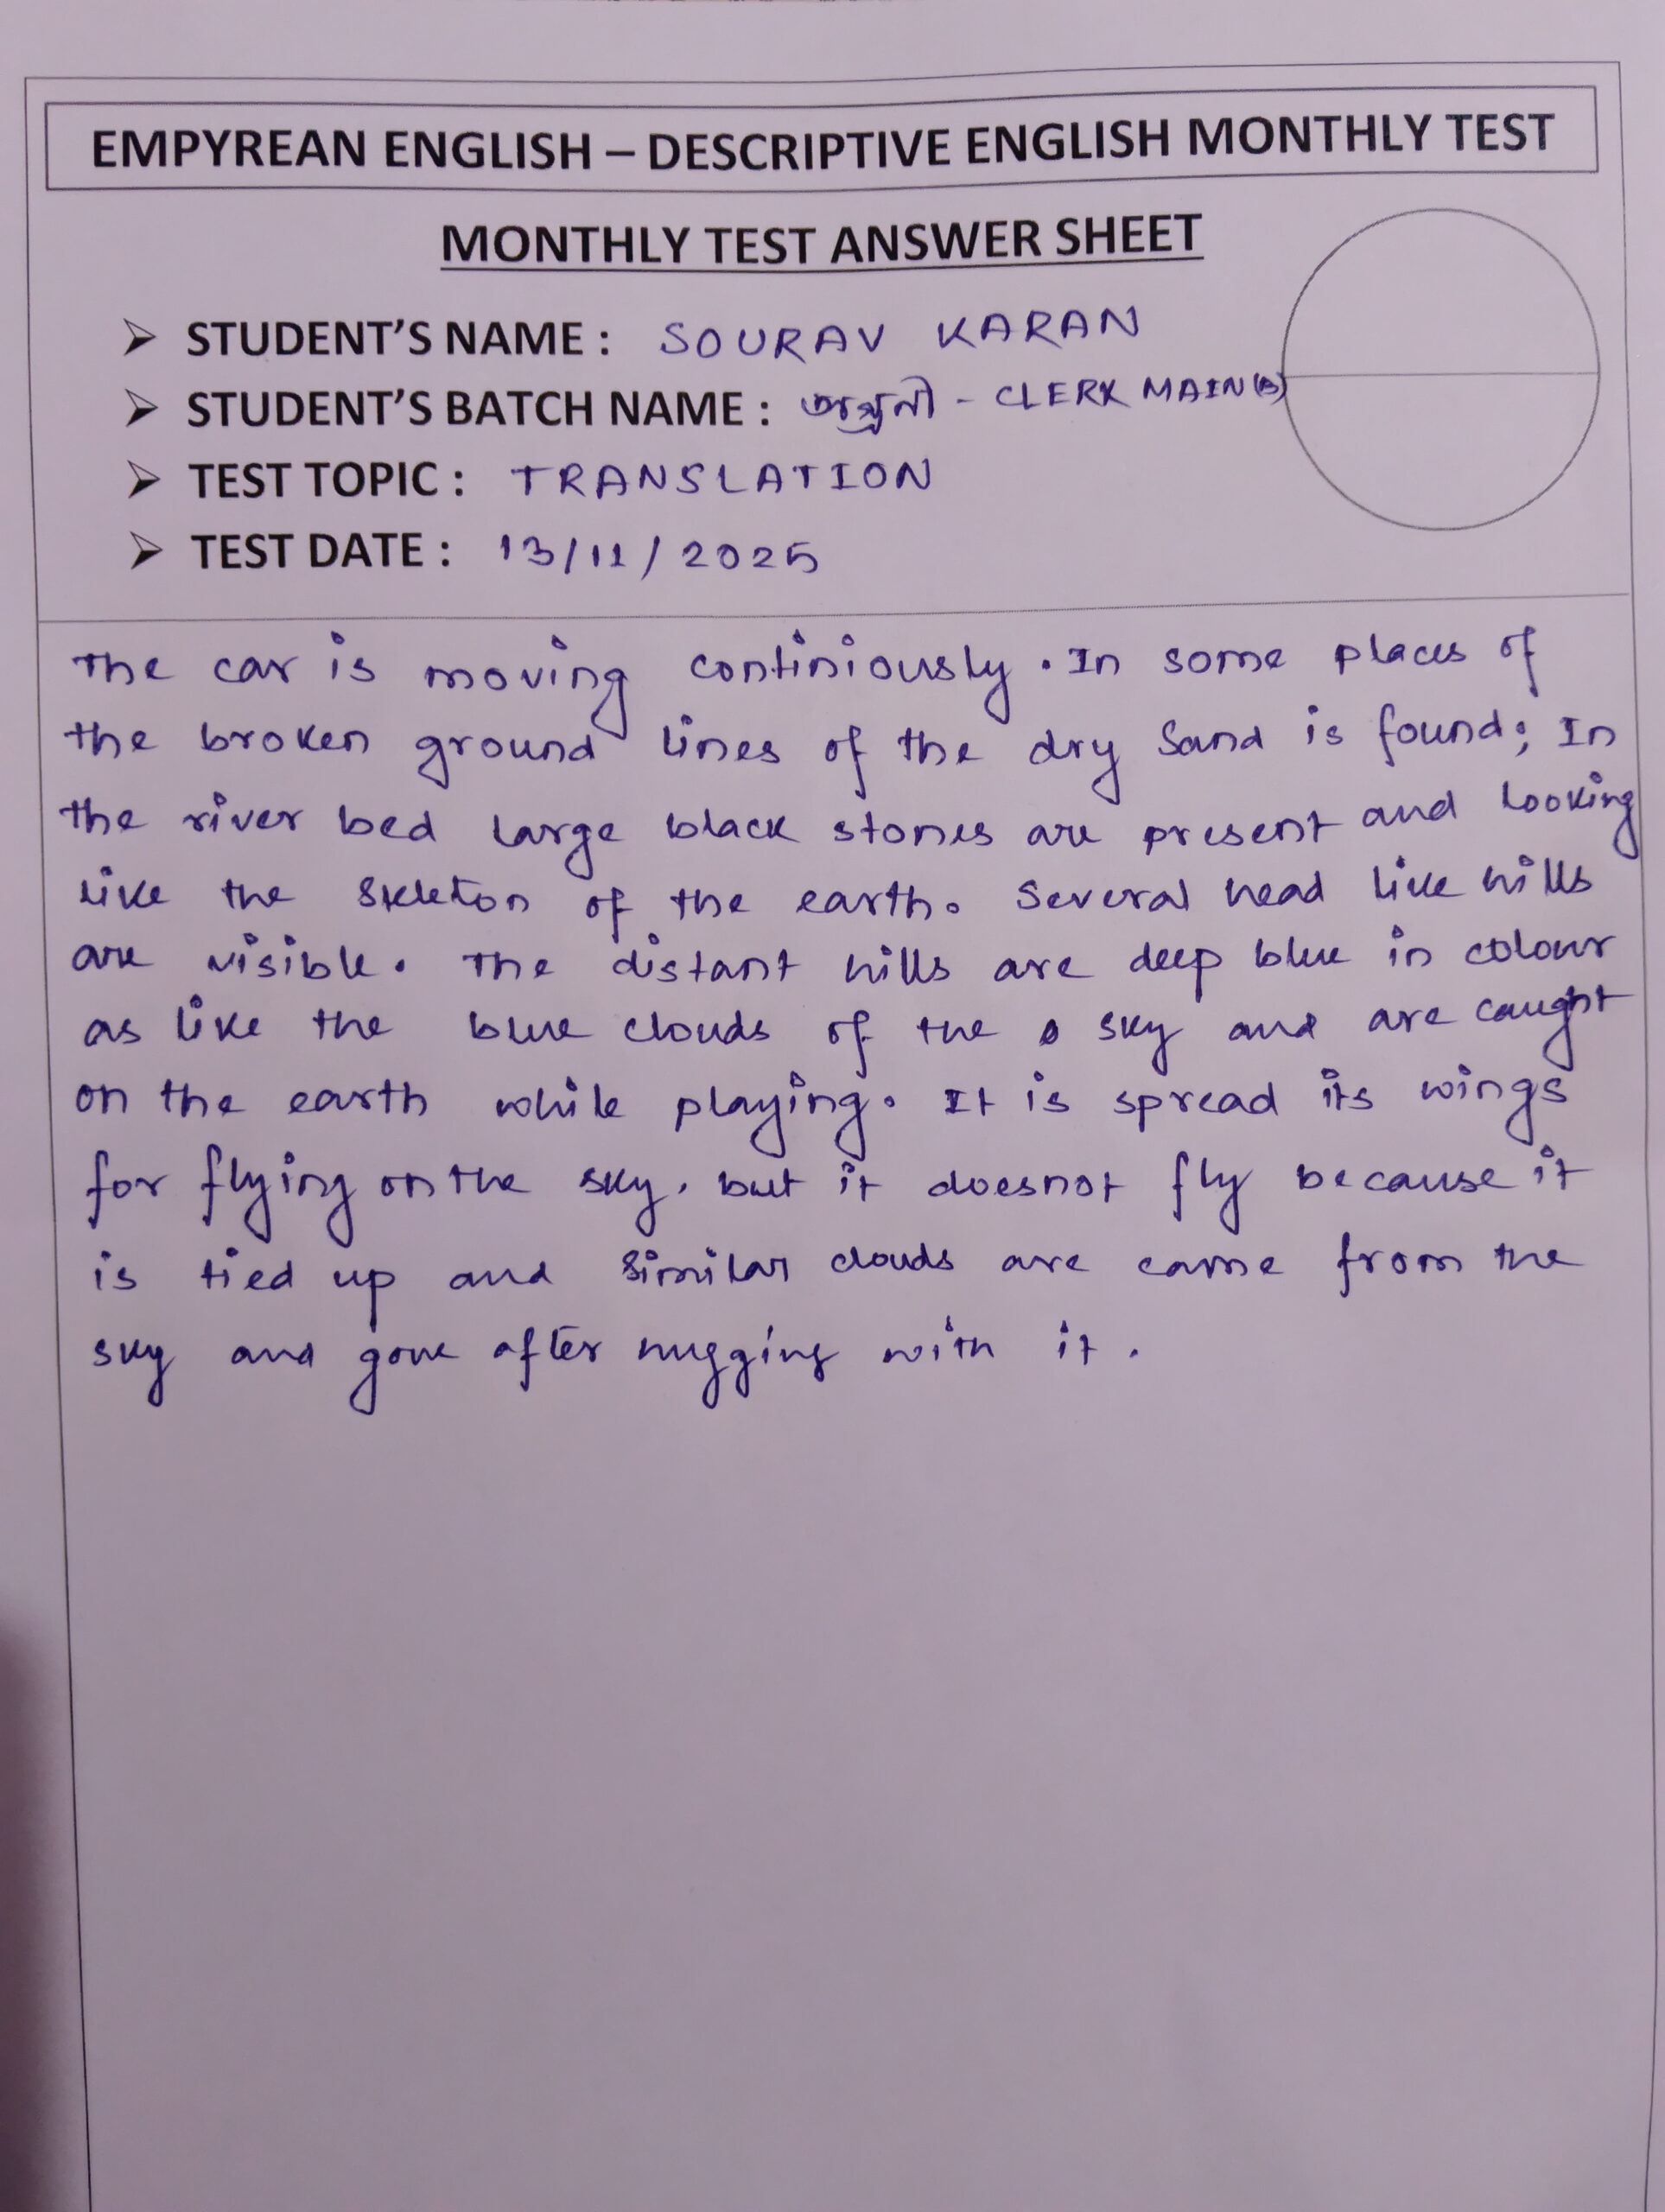 EMPYREAN ENGLISH – DESCRIPTIVE ENGLISH MONTHLY TEST
MONTHLY TEST ANSWER SHEET
➢ STUDENT'S NAME : SOURAV KARAN
➢ STUDENT'S BATCH NAME : - CLERK MAIN(B)
➢ TEST TOPIC : TRANSLATION
➢ TEST DATE : 13/11/2025
The car is moving continiously. In some places of
the broken ground lines of the dry sand is found; In
the river bed large black stones are present and looking
like the skleton of the earth. Several head like hills
are visible. The distant hills are deep blue in colour
as like the blue clouds of the sky and are caught
on the earth while playing. It is spread its wings
for flying on the sky, but it doesnot fly because it
is tied up and similar clouds are came from the
sky and gone after hugging with it.